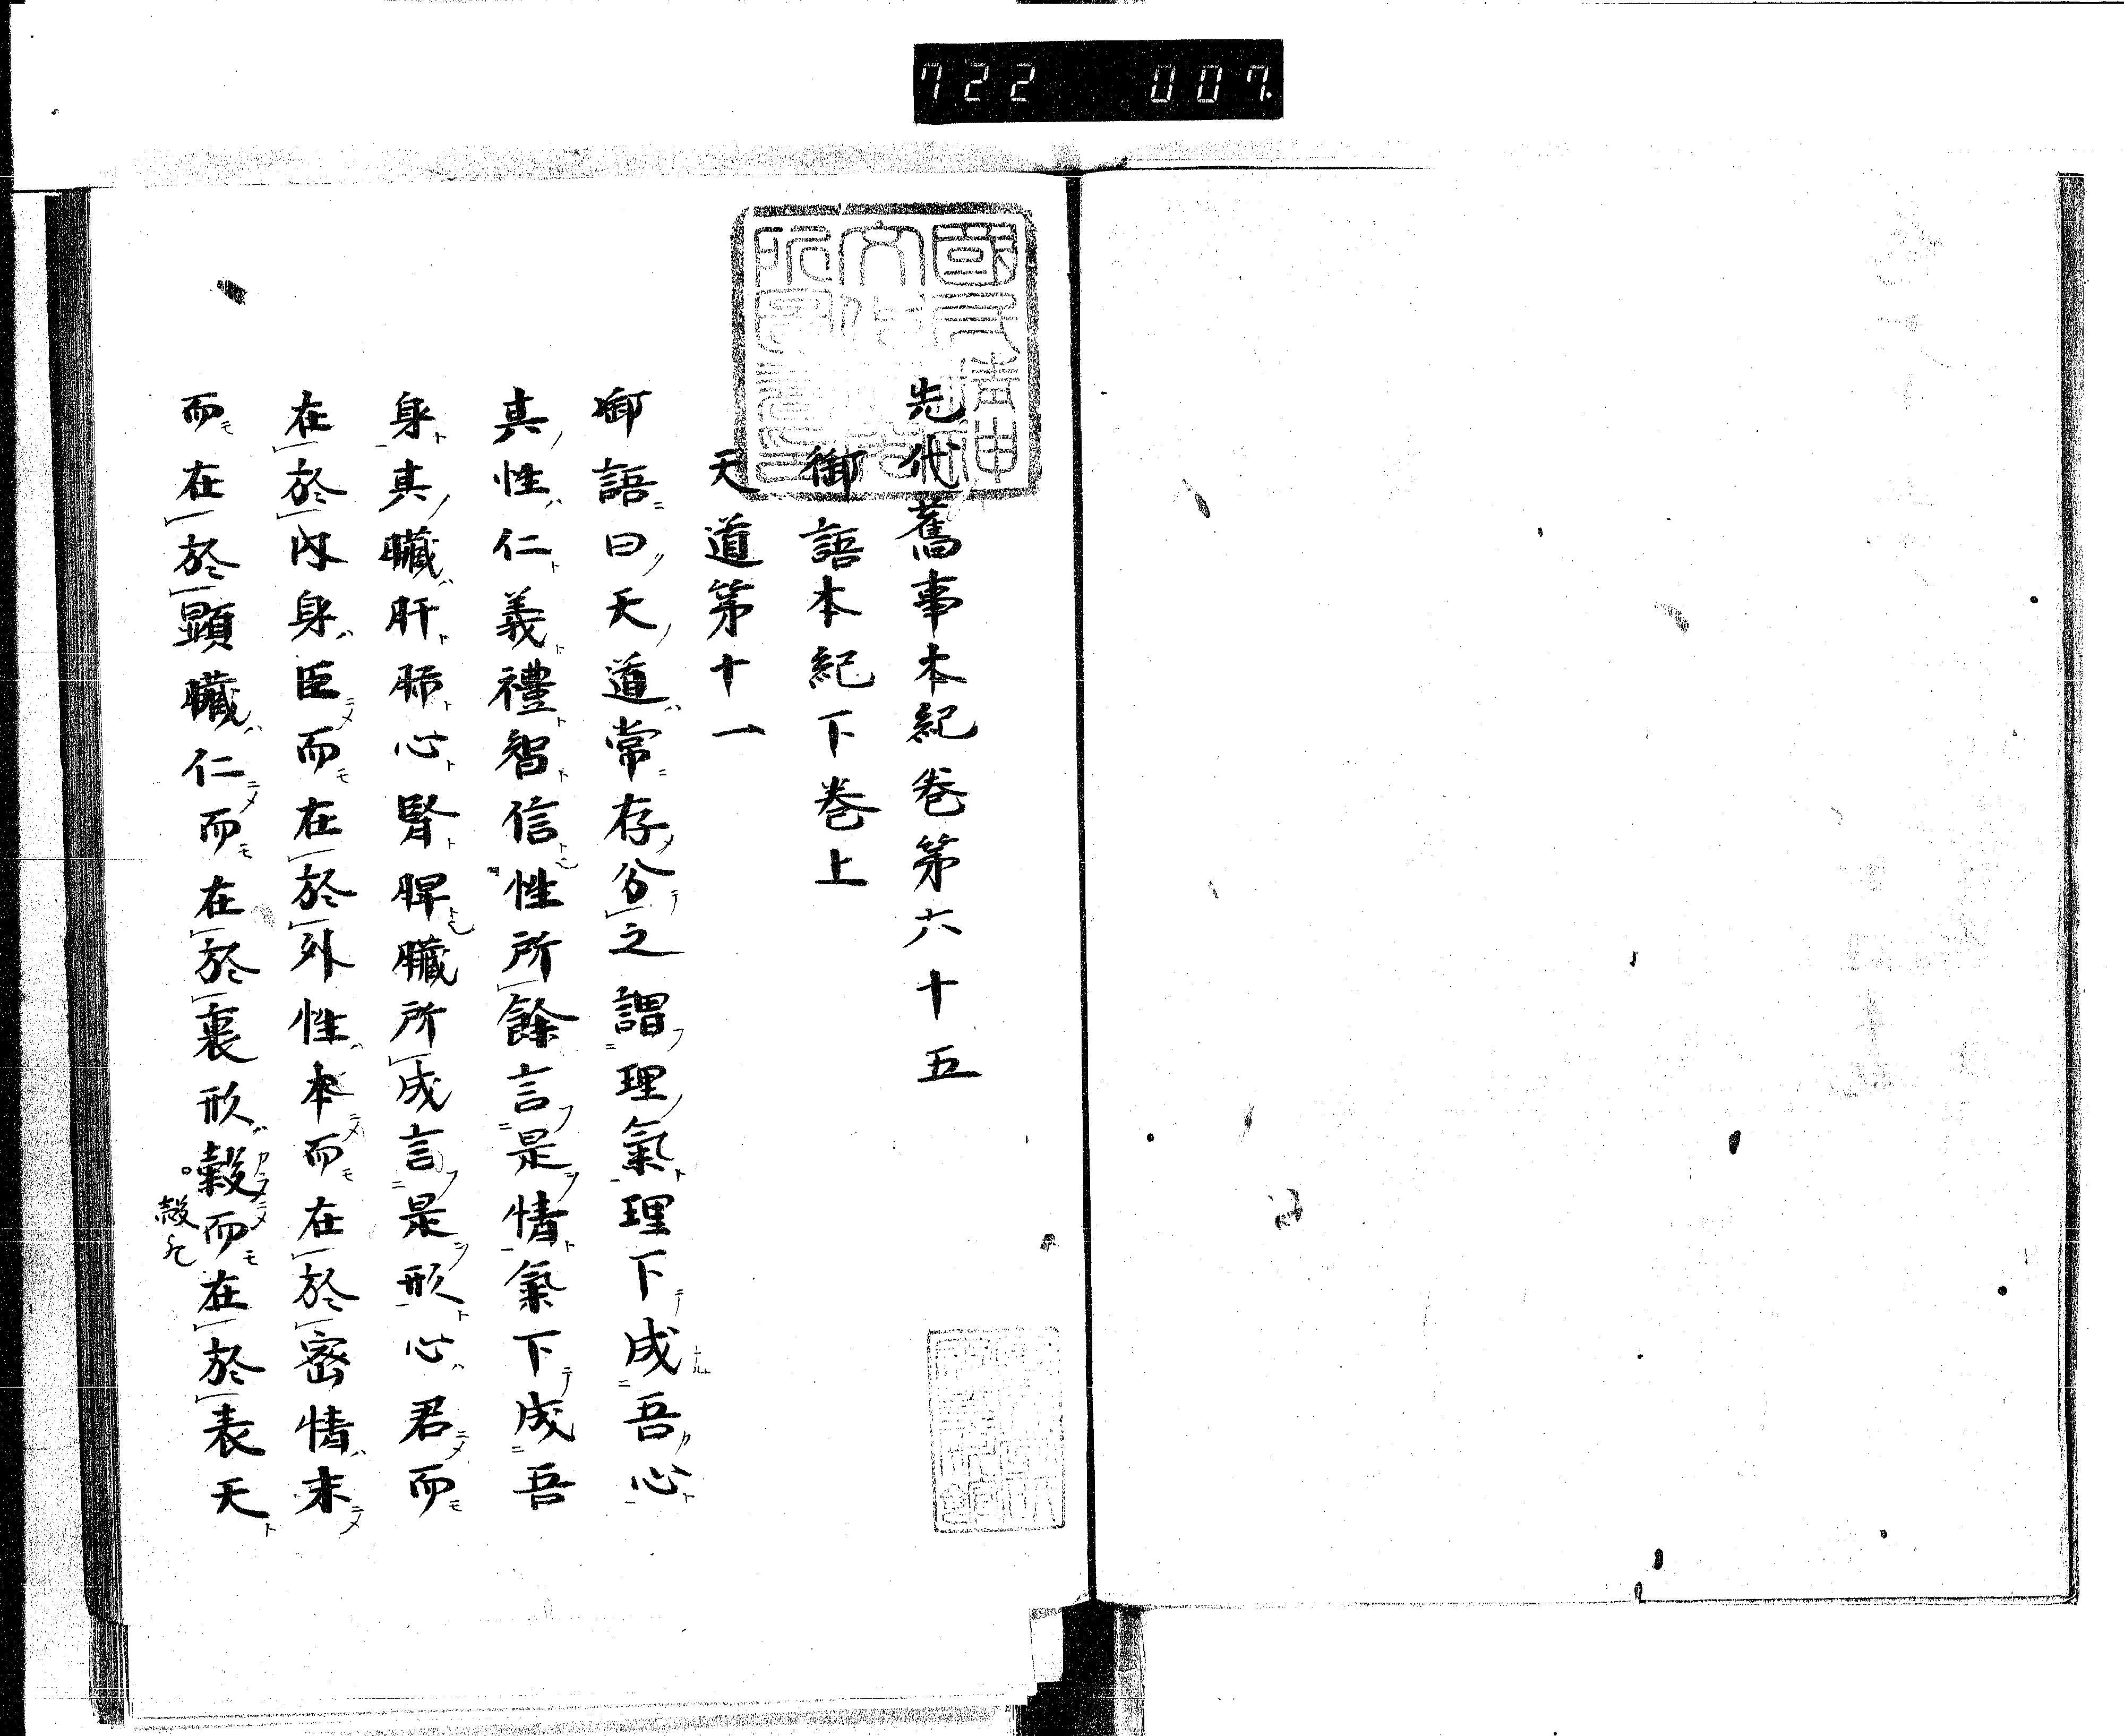 722 007
先代舊事本紀卷第六十五
御語本紀下卷上
天道第十一
御語曰天道常存分之謂理氣理下成吾心
其性仁義禮智信性所餘言是情氣下成吾
身其臓肝肺心腎脾臓所成言是形心君而
在於内身臣而在於外性本而在於密情末
而在於顕臓仁而在於裏形穀而在於表天